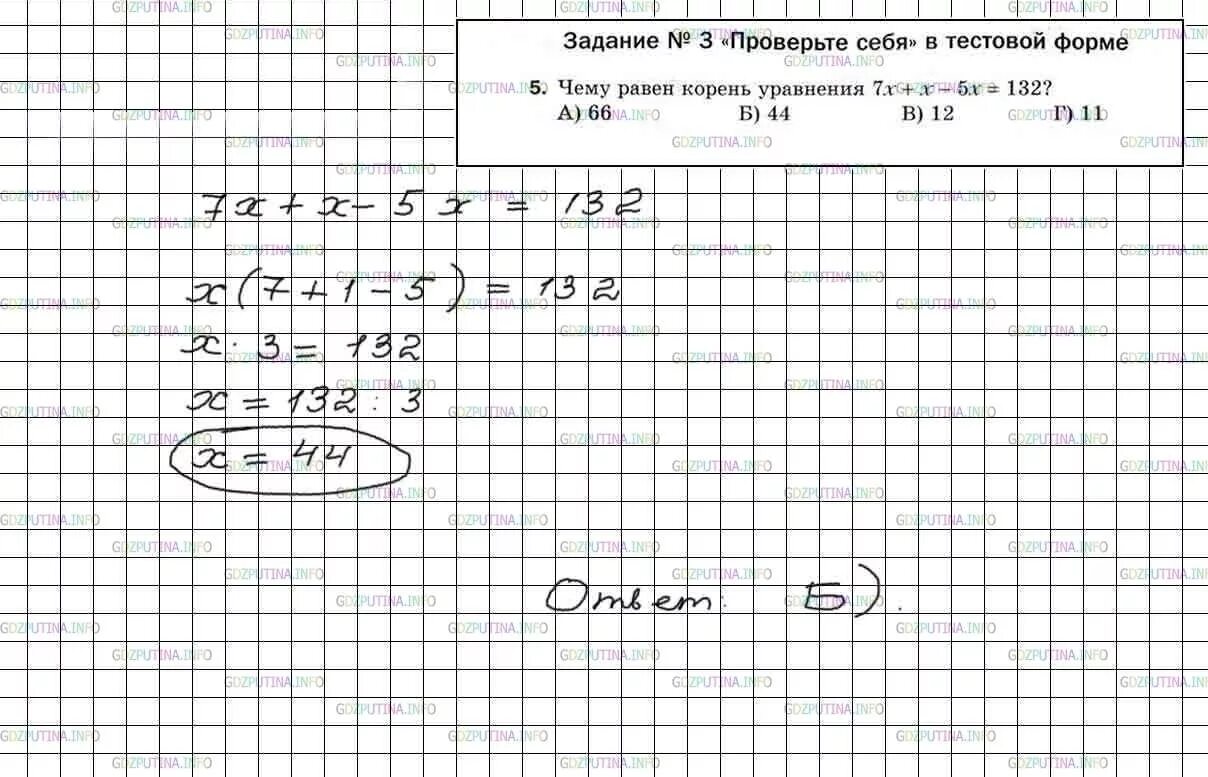 Задание № 3 «Проверьте себя» в тестовой форме
5. Чему равен корень уравнения 7x + x − 5x = 132?
А) 66 Б) 44 В) 12 Г) 11
7x + x − 5x = 132
x(7 + 1 − 5) = 132
x · 3 = 132
x = 132 : 3
x = 44
Ответ: Б).
GDZPUTINA.INFO